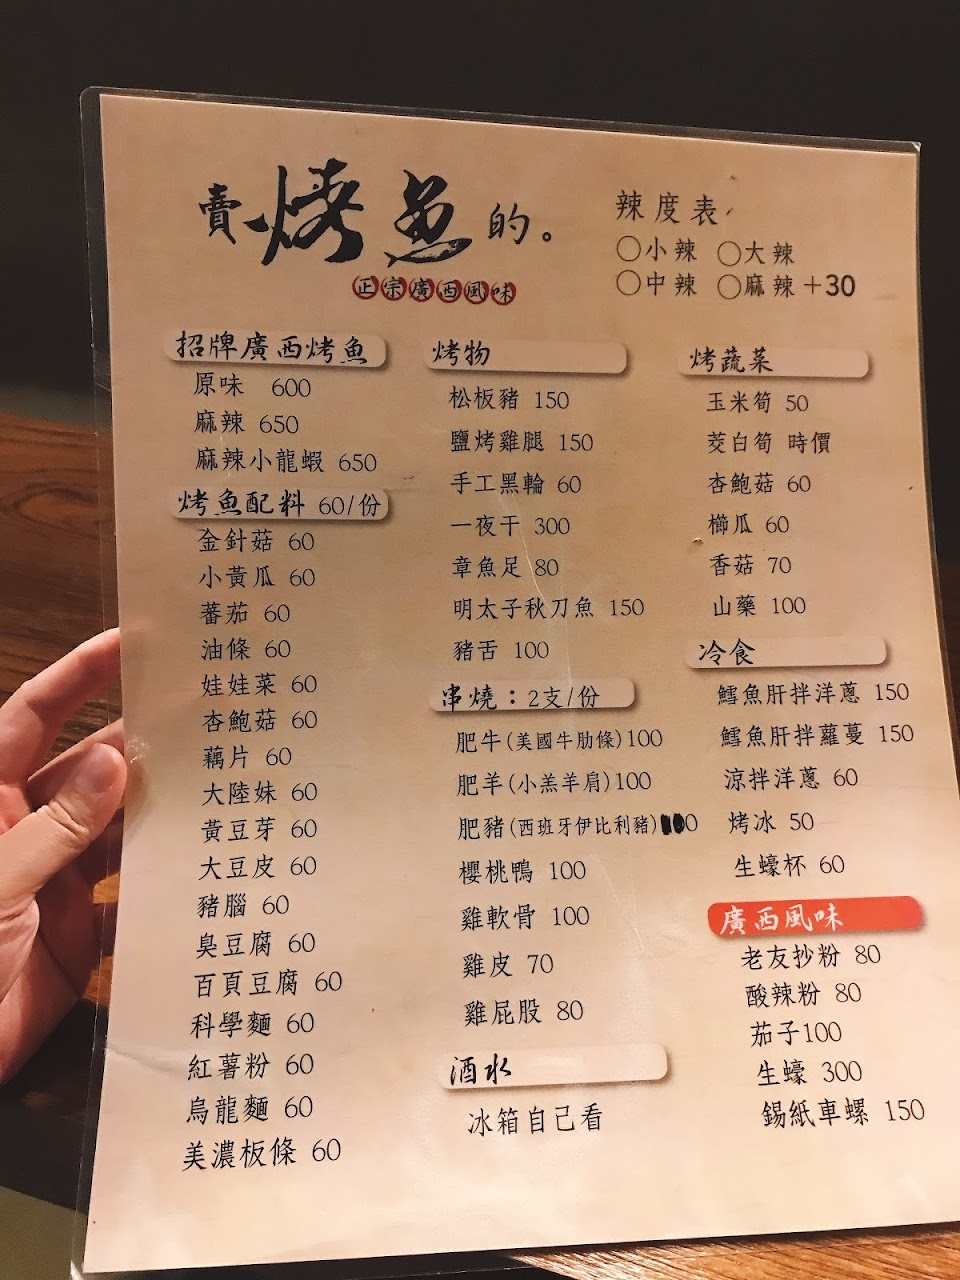 賣烤魚的。
正宗廣西風味
辣度表
○小辣 ○大辣
○中辣 ○麻辣+30
招牌廣西烤魚
原味 600
麻辣 650
麻辣小龍蝦 650
烤魚配料 60/份
金針菇 60
小黃瓜 60
蕃茄 60
油條 60
娃娃菜 60
杏鮑菇 60
藕片 60
大陸妹 60
黃豆芽 60
大豆皮 60
豬腦 60
臭豆腐 60
百頁豆腐 60
科學麵 60
紅薯粉 60
烏龍麵 60
美濃板條 60
烤物
松板豬 150
鹽烤雞腿 150
手工黑輪 60
一夜干 300
章魚足 80
明太子秋刀魚 150
豬舌 100
串燒：2支/份
肥牛(美國牛肋條)100
肥羊(小羔羊肩)100
肥豬(西班牙伊比利豬)
櫻桃鴨 100
雞軟骨 100
雞皮 70
雞屁股 80
酒水
冰箱自己看
烤蔬菜
玉米筍 50
茭白筍 時價
杏鮑菇 60
櫛瓜 60
香菇 70
山藥 100
冷食
鱈魚肝拌洋蔥 150
鱈魚肝拌蘿蔓 150
涼拌洋蔥 60
烤冰 50
生蠔杯 60
廣西風味
老友抄粉 80
酸辣粉 80
茄子100
生蠔 300
錫紙車螺 150